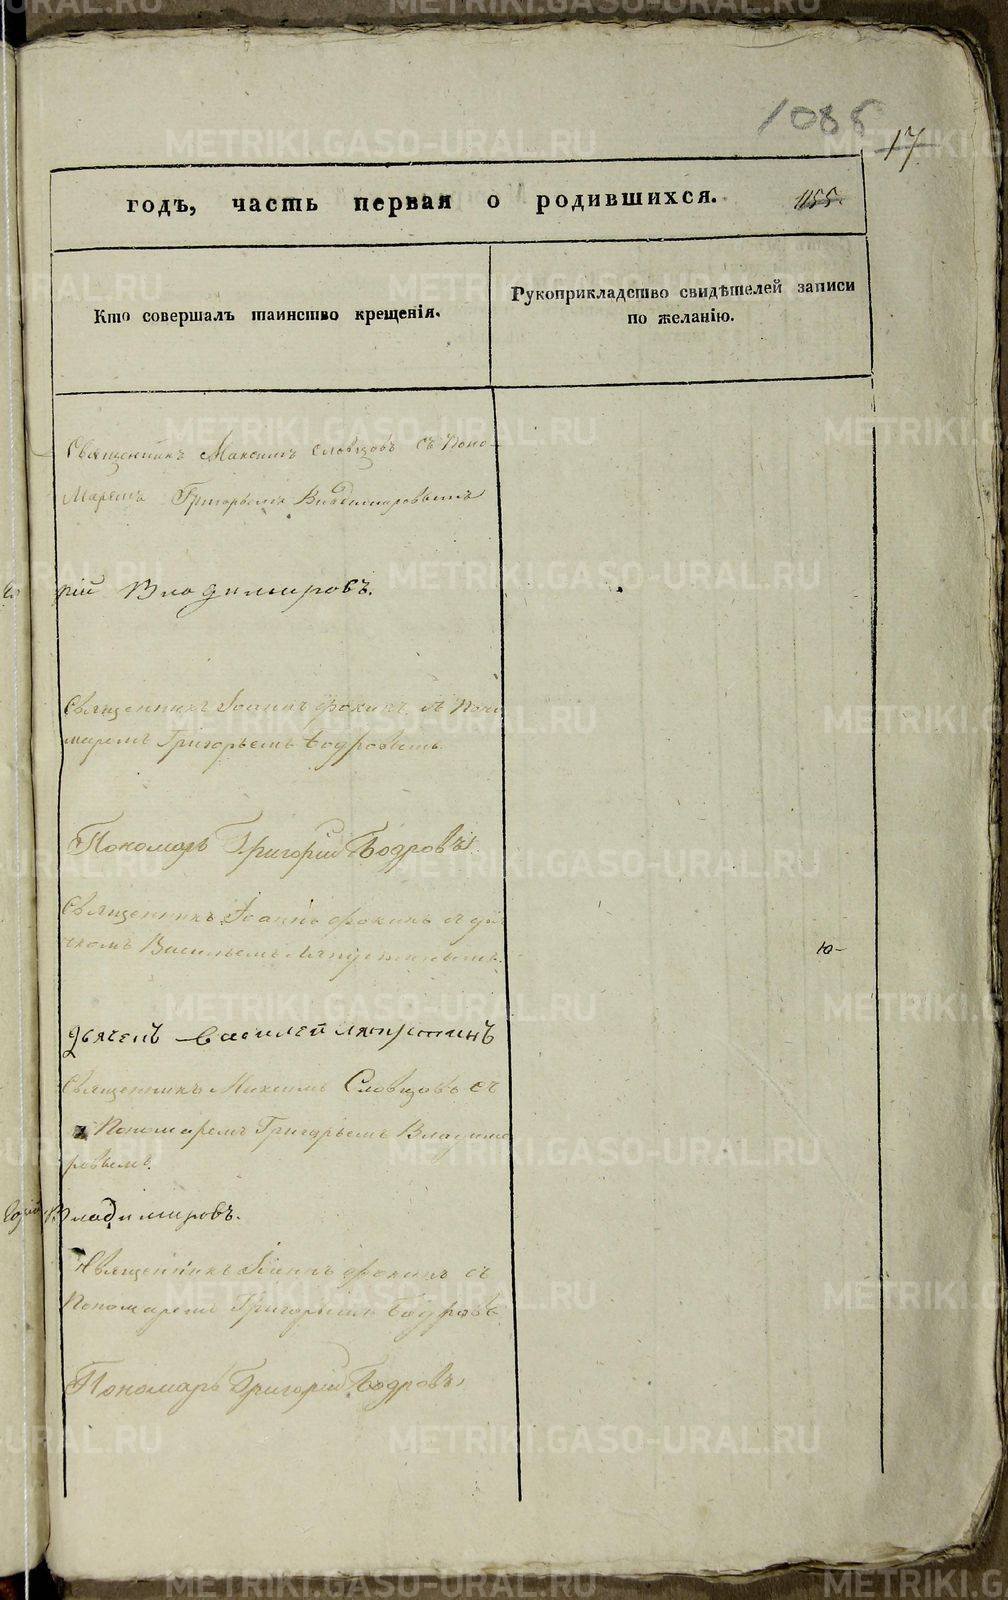 1086
17
годъ, часть первая о родившихся. 1155.
Кто совершалъ таинство крещенія.
Рукоприкладство свидѣтелей записи
по желанію.
Священникъ Максимъ Словцовъ съ Поно-
маремъ Григорьемъ Владимировымъ
рій Владимировъ.
Священникъ Іоаннъ Фокинъ съ Поно
маремъ Григорьемъ Бодровымъ.
Пономарь Григорій Бодровъ
Священникъ Іоаннъ Фокинъ съ дьяч
комъ Васильемъ Ляпустинымъ.
Ю-
дьячекъ Василей Ляпустинъ
Священникъ Максимъ Словцовъ съ
Пономаремъ Григорьемъ Владими
ровымъ.
Владимировъ.
Священникъ Іоаннъ Фокинъ съ
Пономаремъ Григорьемъ Бодровъ
Пономарь Григорій Бодровъ
METRIKI.GASO-URAL.RU